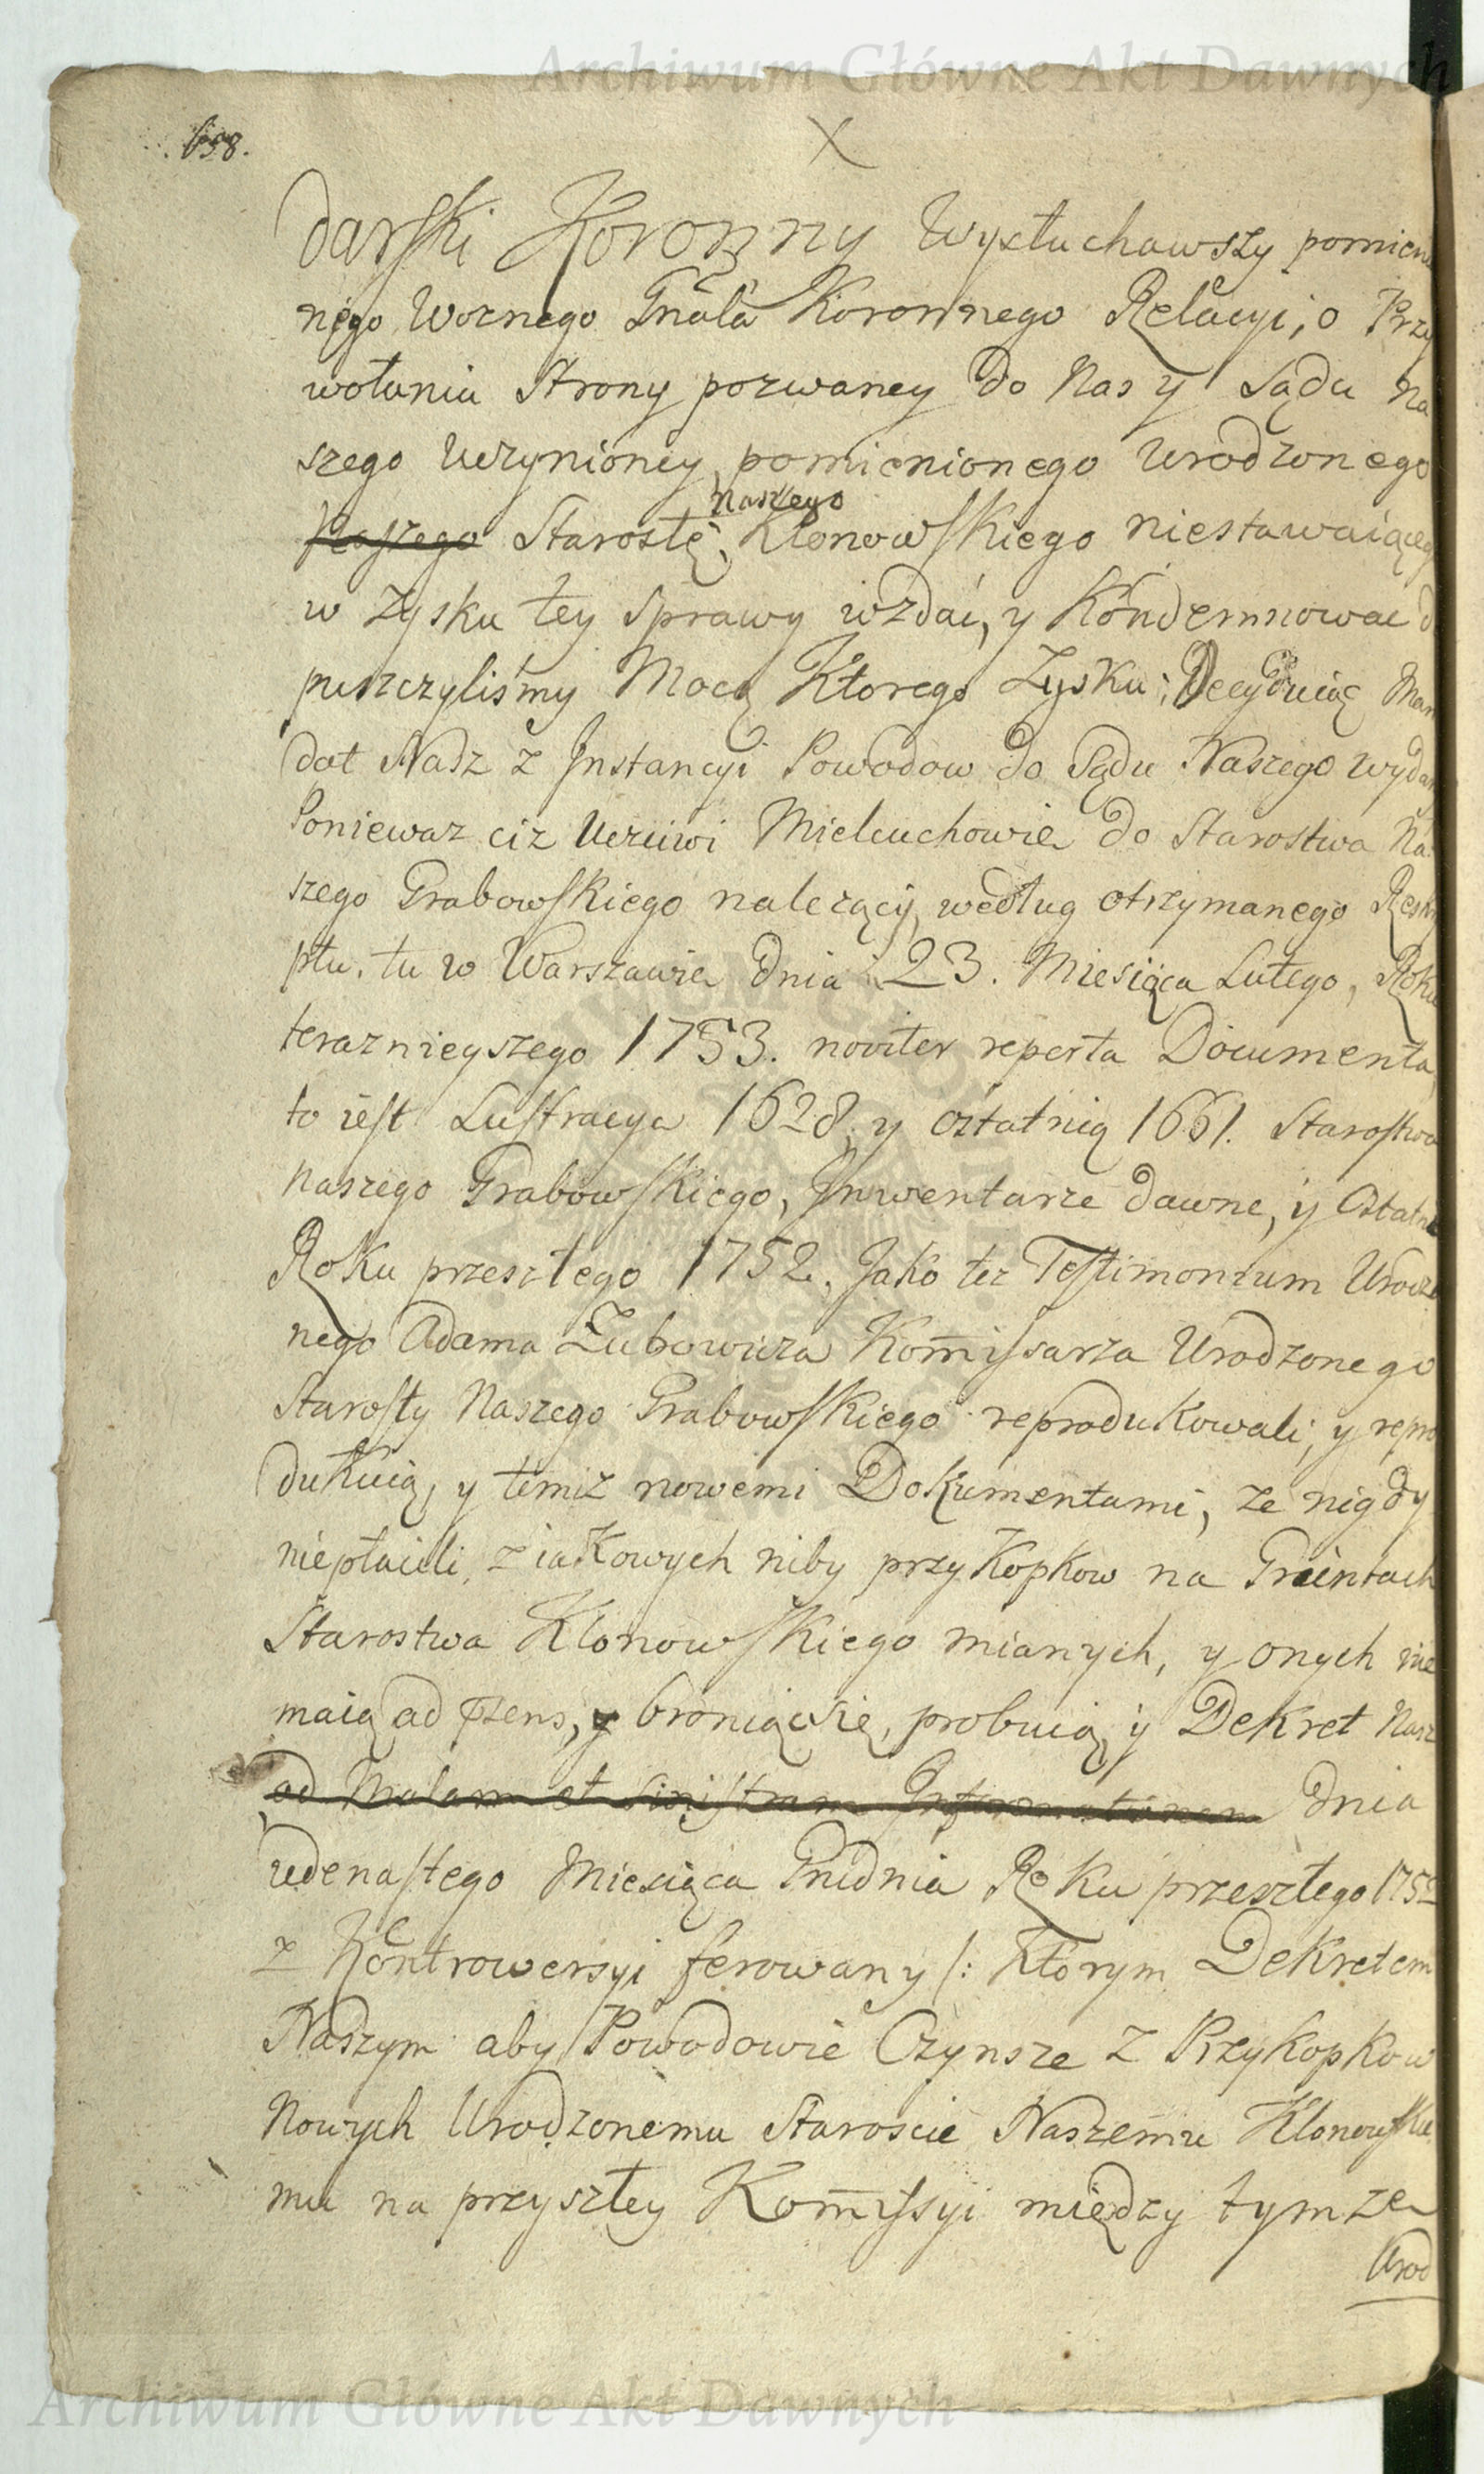 Archiwum Główne Akt Dawnych
658.
X
darski Koronny Wysłuchawszy pomienio
nego Woznego Gnała Koronnego Relacyi, o Przy
wołaniu Strony pozwaney do Nas y Sądu Na
szego uczynioney, pomienionego Urodzonego
naszego
Naszego Starostę Klonowskiego niestawaiącego
w Zysku tey sprawy wzdać, y Kondemnować do
puszczyliśmy Mocą Ktorego Zysku; Decyduiąc Man
dat Nasz z Instancyi Powodow do Sądu Naszego wydany
Poniewaz ciz Uczciwi Mielcuchowie do Starostwa Na
szego Grabowskiego nalezący, według otrzymanego Reskry
ptu, tu w Warszawie dnia 23. Miesiąca Lutego, Roku
teraznieyszego 1753. noviter reperta Documenta,
to iest Lustracya 1628, y ostatnią 1661. Starostwa
naszego Grabowskiego, Inwentarze dawne, y Ostatni
Roku przeszłego 1752. Jako tez Testimonium Urodzo
nego Adama Zubowicza Kom̃issarza Urodzonego
Starosty Naszego Grabowskiego reprodukowali, y repro
dukuią, y temiz nowemi Dokumentami, ze nigdy
niepłacili, z iakowych niby przykopkow na Gruntach
Starostwa Klonowskiego mianych, y onych nie
maią ad Psens, y broniąc się, probuią y Dekret Nasz
ad Malam et sinistram Informationem dnia
iedenastego Miesiąca Grudnia Roku przeszłego 1752
z Kontrowersyi ferowany /: Ktorym Dekretem
Naszym aby Powodowie Czynsze z Przykopkow
Nowych Urodzonemu Staroscie Naszemu Klonowskie
mu na przyszłey Kom̃issyi między tymze
Urod
Archiwum Główne Akt Dawnych